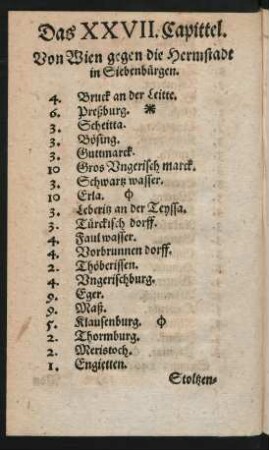 Das XXVII. Capittel.
Von Wien gegen die Hermstadt
in Siebenbürgen.
4. Bruck an der Leitte.
6. Preßburg. ⁜
3. Scheitta.
3. Bösing.
3. Guttmarck.
10 Gros Vngerisch marck.
3. Schwartz wasser.
10 Erla. Φ
3. Leberitz an der Teyssa.
3. Türckisch dorff.
4. Faul wasser.
4. Vorbrunnen dorff.
2. Thöberissen.
4. Vngerischburg.
9. Eger.
9. Maß.
5. Klausenburg. Φ
2. Thormburg.
2. Meristoch.
1. Engietten.
Stoltzen-